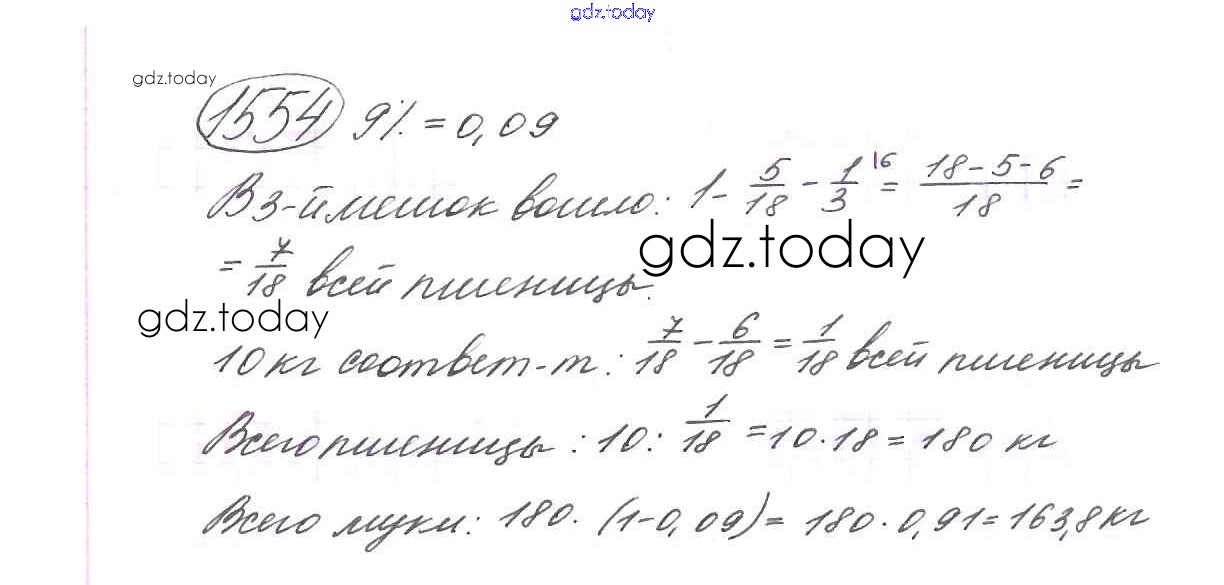 gdz.today
gdz.today
1554 9% = 0,09
В 3-й мешок вошло: 1 - 5/18 - 1/3 \6 = (18-5-6)/18 =
= 7/18 всей пшеницы.
gdz.today
gdz.today
10 кг соответ-т: 7/18 - 6/18 = 1/18 всей пшеницы
Всего пшеницы: 10 : 1/18 = 10·18 = 180 кг
Всего муки: 180·(1-0,09) = 180·0,91 = 163,8 кг